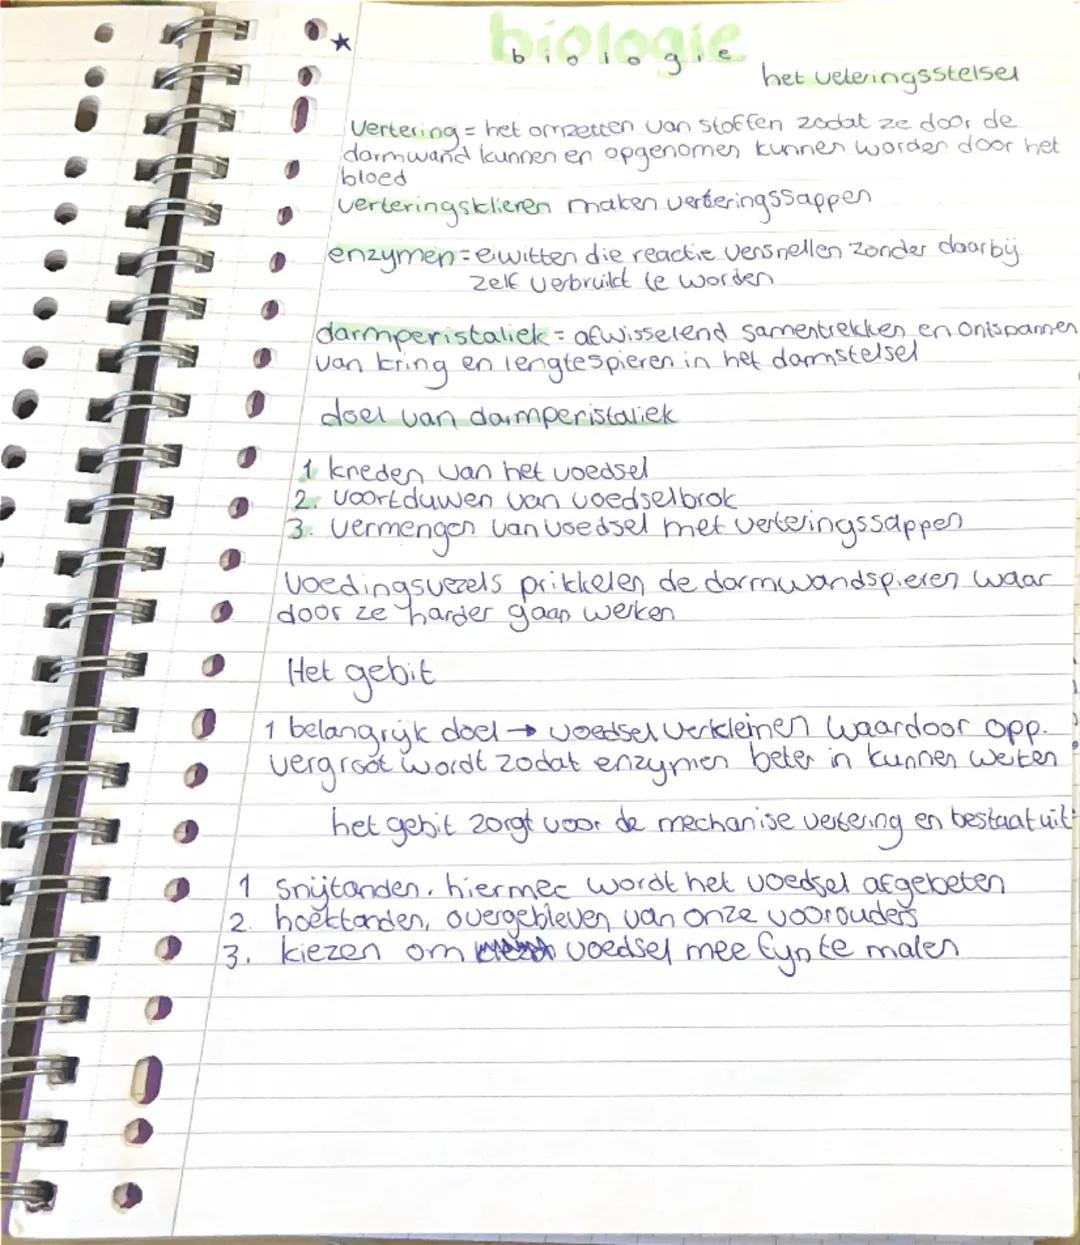 biologie
biologie
het veteringsstelsel
Vertering = het omzetten van stoffen zodat ze door de
darmwand kunnen en opgenomen kunnen worden door het
bloed
verteringsklieren maken verteringssappen
enzymen = eiwitten die reactie versnellen zonder daarbij
zelf verbruikt te worden
darmperistaliek = afwisselend samentrekken en ontspannen
van kring en lengtespieren in het darmstelsel
doel van darmperistaliek
1 kneden van het voedsel
2. voortduwen van voedselbrok
3. vermengen van voedsel met verteringssappen
Voedingsvezels prikkelen de darmwandspieren waar
door ze harder gaan werken
Het gebit
1 belangrijk doel → voedsel verkleinen waardoor opp.
vergroot wordt zodat enzymen beter in kunnen werken
het gebit zorgt voor de mechanise vertering en bestaat uit:
1 snijtanden. hiermee wordt het voedsel afgebeten
2. hoektanden, overgebleven van onze voorouders
3. kiezen om voedsel mee fijn te malen